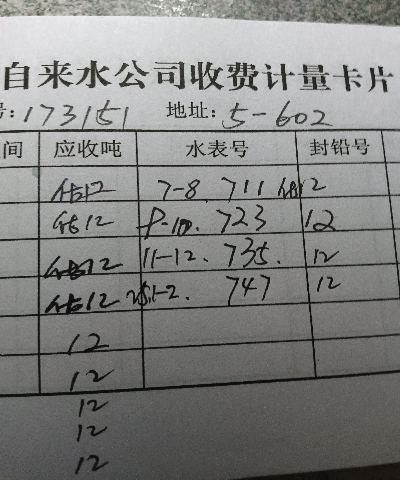 自来水公司收费计量卡片
号:173151 地址:5-602
间 应收吨 水表号 封铅号
估12 7-8. 711 估12
估12 9-10. 723 12
估12 11-12. 735. 12
估12 25.1-2. 747 12
12
12
12
12
12